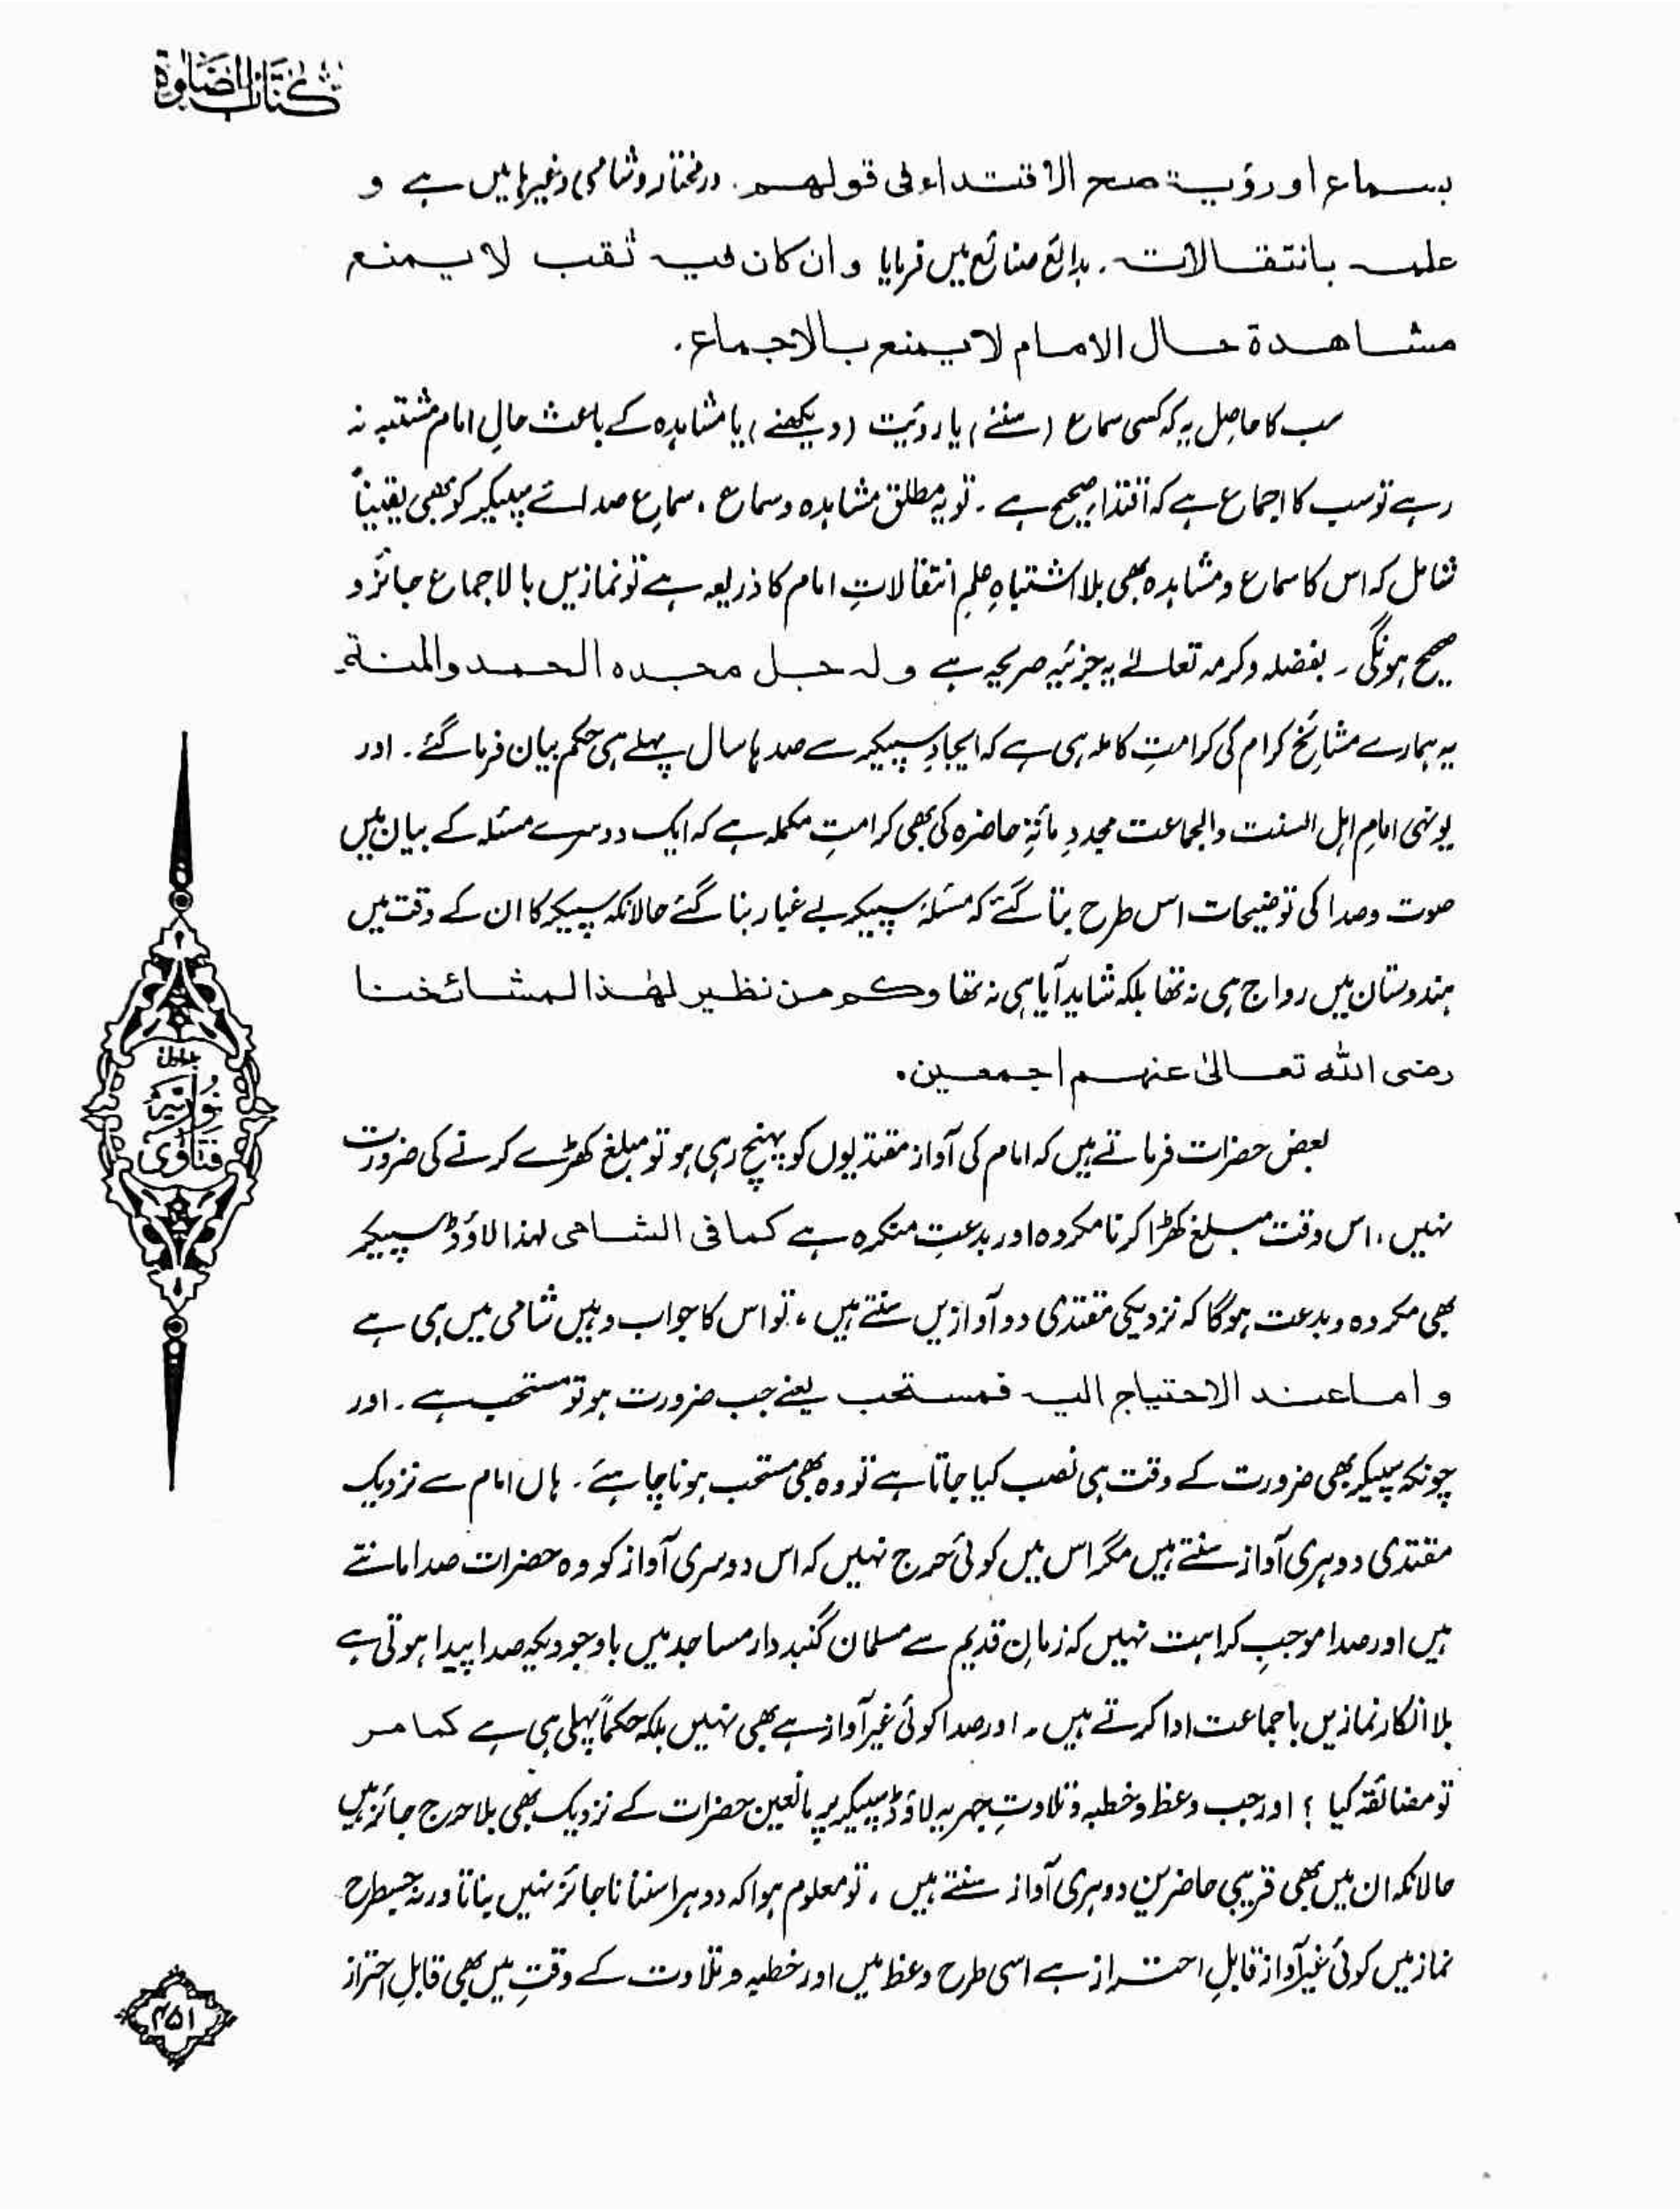 كتاب الصلوة
بسماع او رؤية صح الاقتداء فی قولهم۔ درمختار و شامی وغیرہا میں ہے و
علمه بانتقالات۔ بدائع صنائع میں فرمایا و ان كان فيه ثقب لا يمنع
مشاهدة حال الامام لا يمنع بالاجماع۔
سب کا حاصل یہ کہ کسی سماع (سننے) یا روئیت (دیکھنے) یا مشاہدہ کے باعث حالِ امام مشتبہ نہ
رہے تو سب کا اجماع ہے کہ اقتدا صحیح ہے۔ تو یہ مطلق مشاہدہ و سماع، سماعِ صدائے سپیکر کو بھی یقیناً
شامل کہ اس کا سماع و مشاہدہ بھی بلا اشتباہِ علمِ انتقالاتِ امام کا ذریعہ ہے تو نمازیں بالاجماع جائز و
صحیح ہونگی۔ بفضلہ و کرمہ تعالےٰ یہ جزئیہ صریحہ ہے و له جل مجده الحمد والمنة۔
یہ ہمارے مشائخ کرام کی کرامتِ کاملہ ہی ہے کہ ایجادِ سپیکر سے صدہا سال پہلے ہی حکم بیان فرما گئے۔ اور
یونہی امامِ اہل السنت والجماعت مجددِ مائۃِ حاضرہ کی بھی کرامتِ مکملہ ہے کہ ایک دوسرے مسئلہ کے بیان میں
صوت و صدا کی توضیحات اس طرح بتا گئے کہ مسئلۂ سپیکر بے غبار بنا گئے حالانکہ سپیکر کا ان کے وقت میں
ہندوستان میں رواج ہی نہ تھا بلکہ شاید آیا ہی نہ تھا وكم من نظير لهٰذا لمشائخنا
رضی الله تعالیٰ عنهم اجمعين۔
بعض حضرات فرماتے ہیں کہ امام کی آواز مقتدیوں کو پہنچ رہی ہو تو مبلغ کھڑے کرنے کی ضرورت
نہیں، اس وقت مبلغ کھڑا کرنا مکروہ اور بدعتِ منکرہ ہے كما فی الشامی لہذا لاؤڈ سپیکر
بھی مکروہ و بدعت ہوگا کہ نزدیکی مقتدی دو آوازیں سنتے ہیں، تو اس کا جواب وہیں شامی میں ہی ہے
و اما عند الاحتياج اليه فمستحب یعنے جب ضرورت ہو تو مستحب ہے۔ اور
چونکہ سپیکر بھی ضرورت کے وقت ہی نصب کیا جاتا ہے تو وہ بھی مستحب ہونا چاہئے۔ ہاں امام سے نزدیک
مقتدی دوہری آواز سنتے ہیں مگر اس میں کوئی حرج نہیں کہ اس دوسری آواز کو وہ حضرات صدا مانتے
ہیں اور صدا موجبِ کراہت نہیں کہ زمانِ قدیم سے مسلمان گنبد دار مساجد میں باوجودیکہ صدا پیدا ہوتی ہے
بلا انکار نمازیں باجماعت ادا کرتے ہیں۔ اور صدا کوئی غیر آواز ہے بھی نہیں بلکہ حکماً پہلی ہی ہے كما مر
تو مضائقہ کیا؟ اور جب وعظ و خطبہ و تلاوتِ جہریہ لاؤڈ سپیکر پر مانعین حضرات کے نزدیک بھی بلا حرج جائز ہیں
حالانکہ ان میں بھی قریبی حاضرین دوہری آواز سنتے ہیں، تو معلوم ہوا کہ دوہرا سننا ناجائز نہیں بناتا ورنہ جسطرح
نماز میں کوئی غیر آواز قابلِ احتراز ہے اسی طرح وعظ میں اور خطبہ و تلاوت کے وقتِ میں بھی قابلِ احتراز
جلد اول
نوریہ
فتاوی
۴۵۱